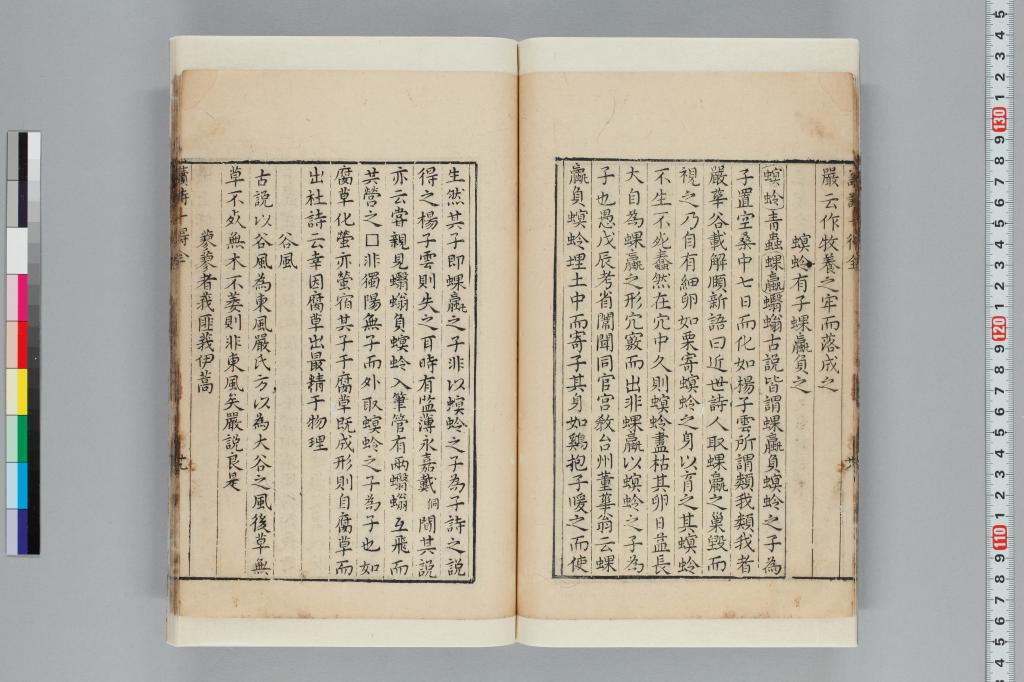 嚴云作牧養之牢而落成之
螟蛉有子蜾蠃負之
螟蛉青蟲蜾蠃蠮螉古說皆謂蜾蠃負螟蛉之子為
子置空桑中七日而化如楊子雲所謂類我類我者
嚴華谷載解頤新語曰近世詩人取蜾蠃之巢毀而
視之乃自有細卵如粟寄螟蛉之身以育之其螟蛉
不生不死蠢然在穴中久則螟蛉盡枯其卵日益長
大自為蜾蠃之形穴竅而出非蜾蠃以螟蛉之子為
子也愚戊辰考省闈聞同官宮教台州董華翁云蜾
蠃負螟蛉埋土中而寄子其身如鷄抱子暖之而使
生然其子即蜾蠃之子非以螟蛉之子為子詩之說
得之楊子雲則失之耳時有監薄永嘉戴侗聞其說
亦云甞親見蠮螉負螟蛉入筆管有兩蠮螉互飛而
共營之口非獨陽無子而外取螟蛉之子為子也如
腐草化螢亦螢宿其子于腐草既成形則自腐草而
出杜詩云幸因腐草出最精于物理
谷風
古說以谷風為東風嚴氏方以為大谷之風後草無
草不死無木不萎則非東風矣嚴說良是
蓼蓼者莪匪莪伊蒿
5
4
3
2
1
130
9
8
7
6
5
4
3
2
1
120
9
8
7
6
5
4
3
2
1
110
9
8
7
6
5
4